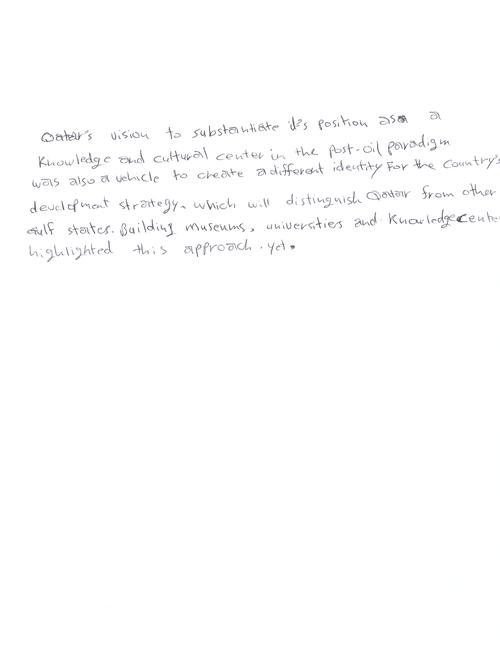 Qatar's vision to substantiate it's position as a
Knowledge and cultural center in the post-oil paradigm
was also a vehicle to create a different identity for the Country's
development strategy, which will distinguish Qatar from other
gulf states. Building museums, universities and Knowledge cente
highlighted this approach. yet.